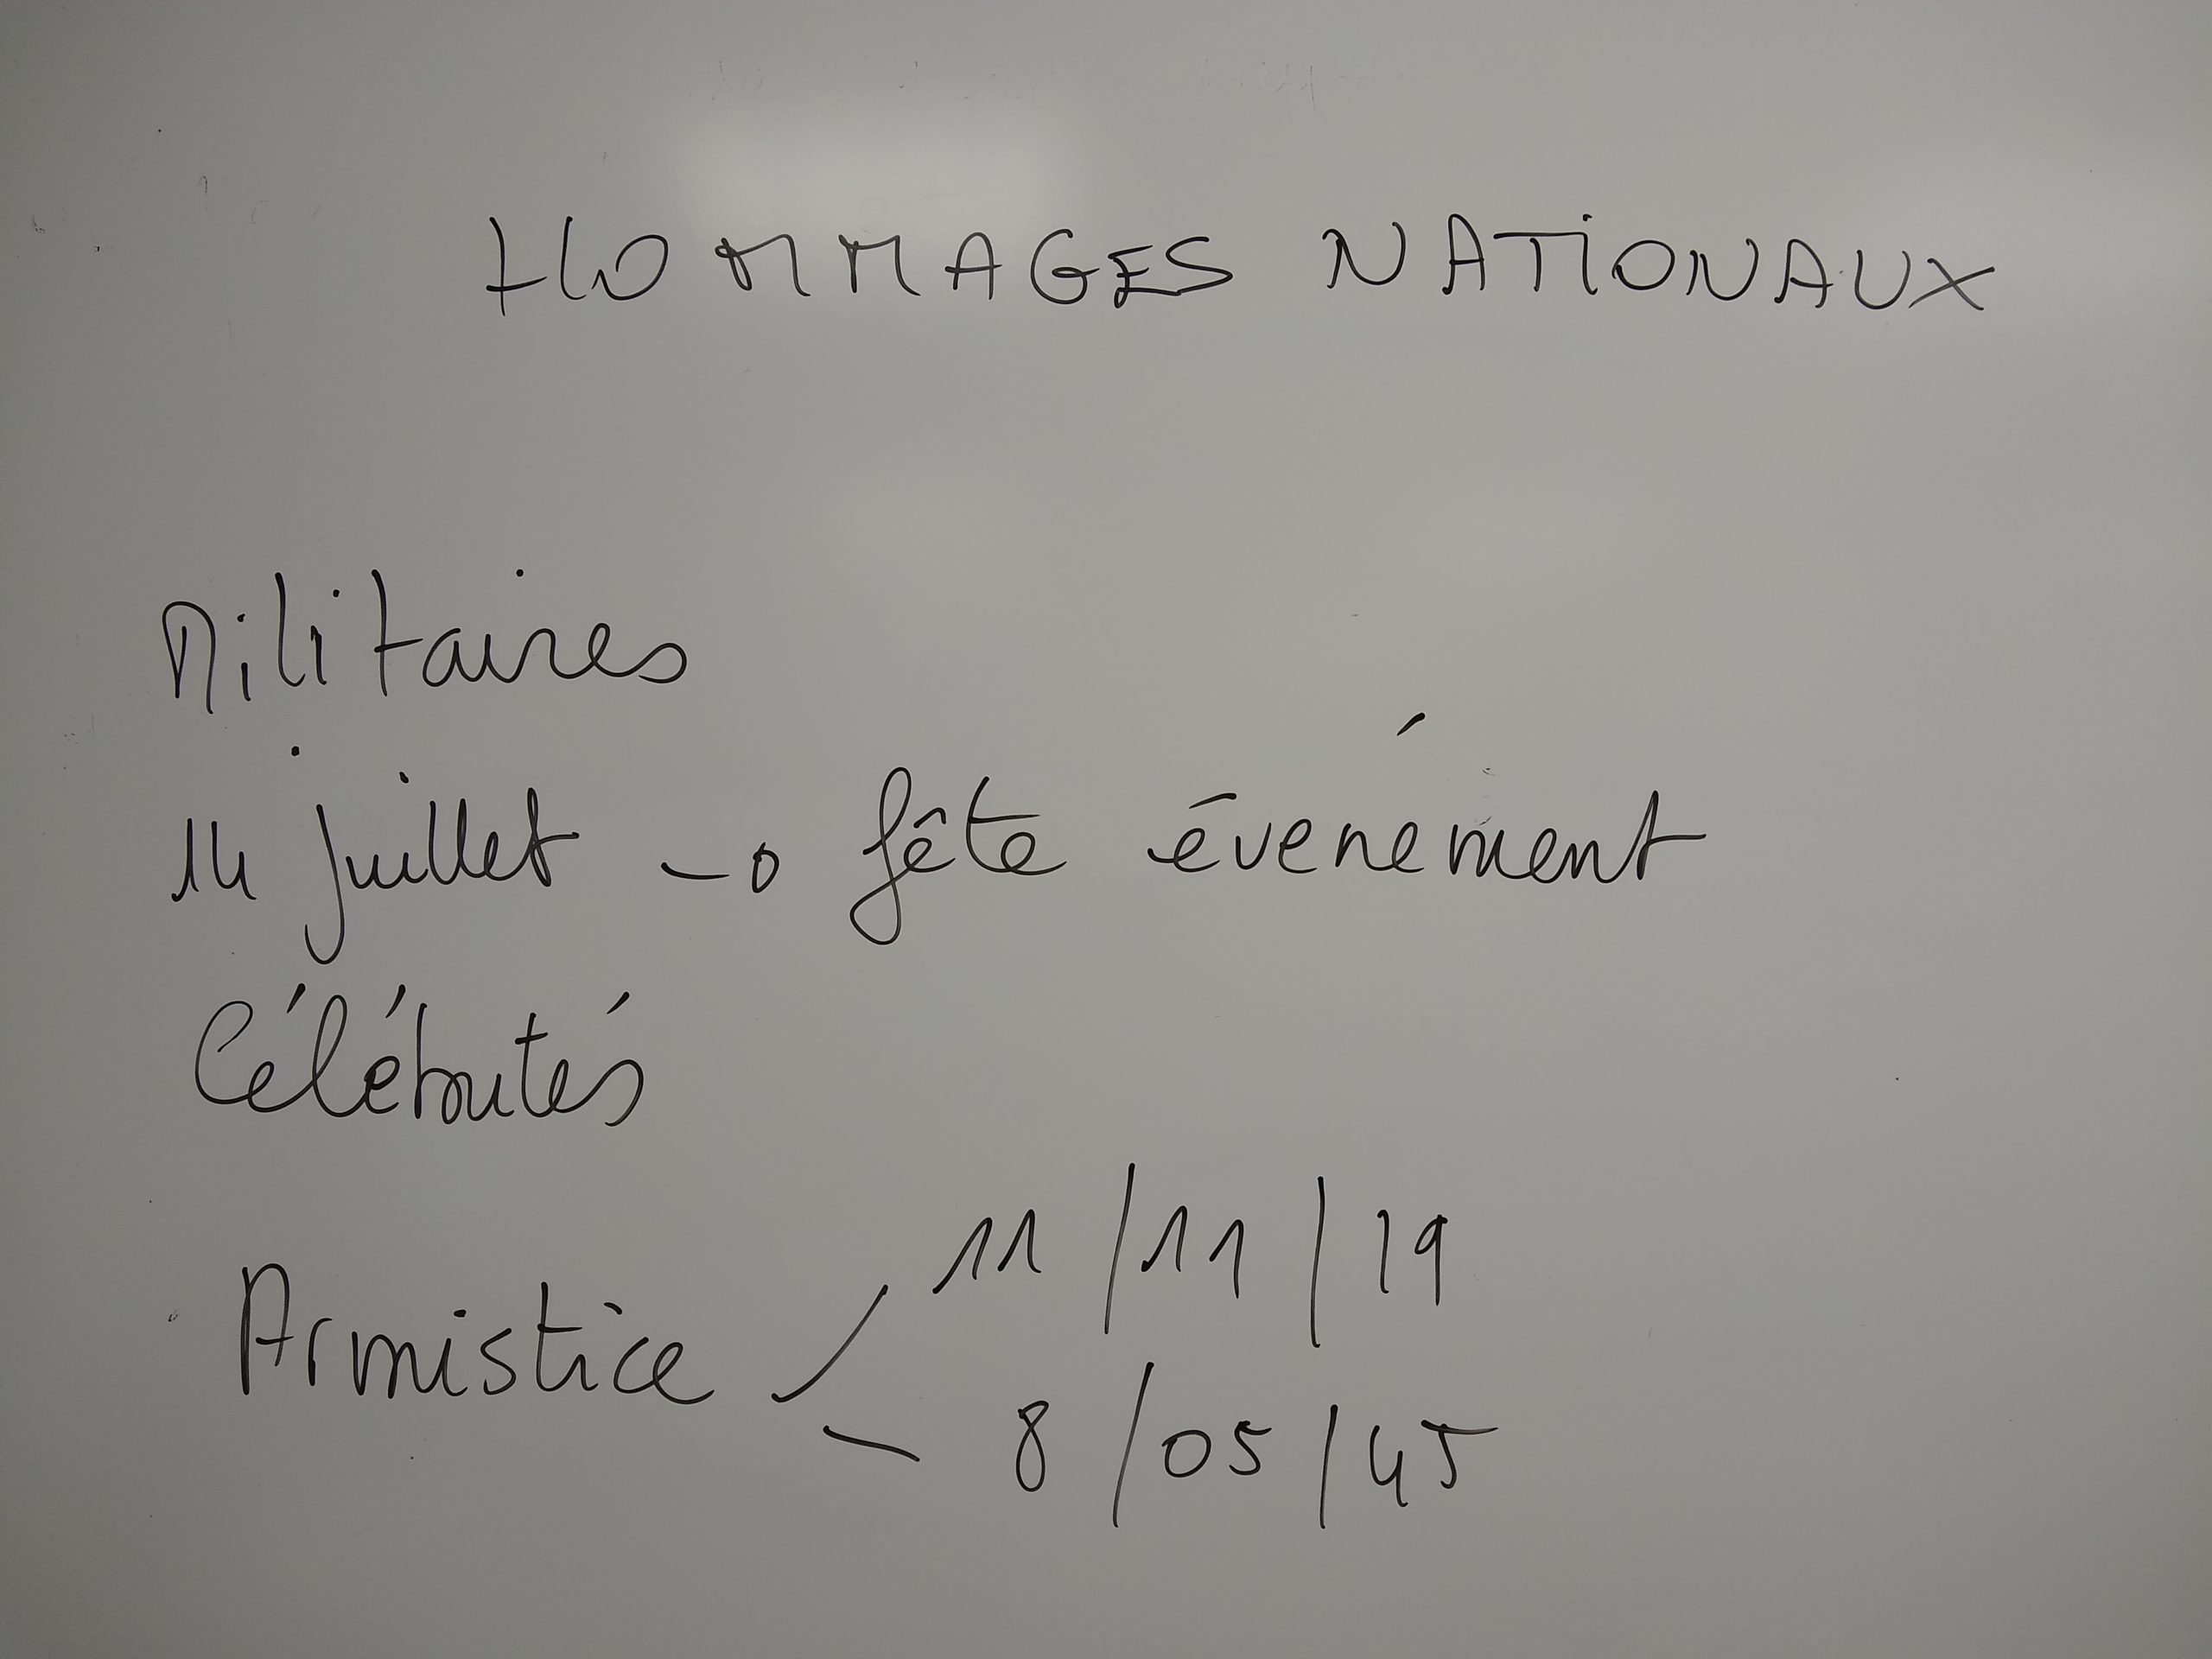 HOMMAGES NATIONAUX
Militaires
14 juillet → fête événement
Célébrités
Armistice
11/11/19
8/05/45